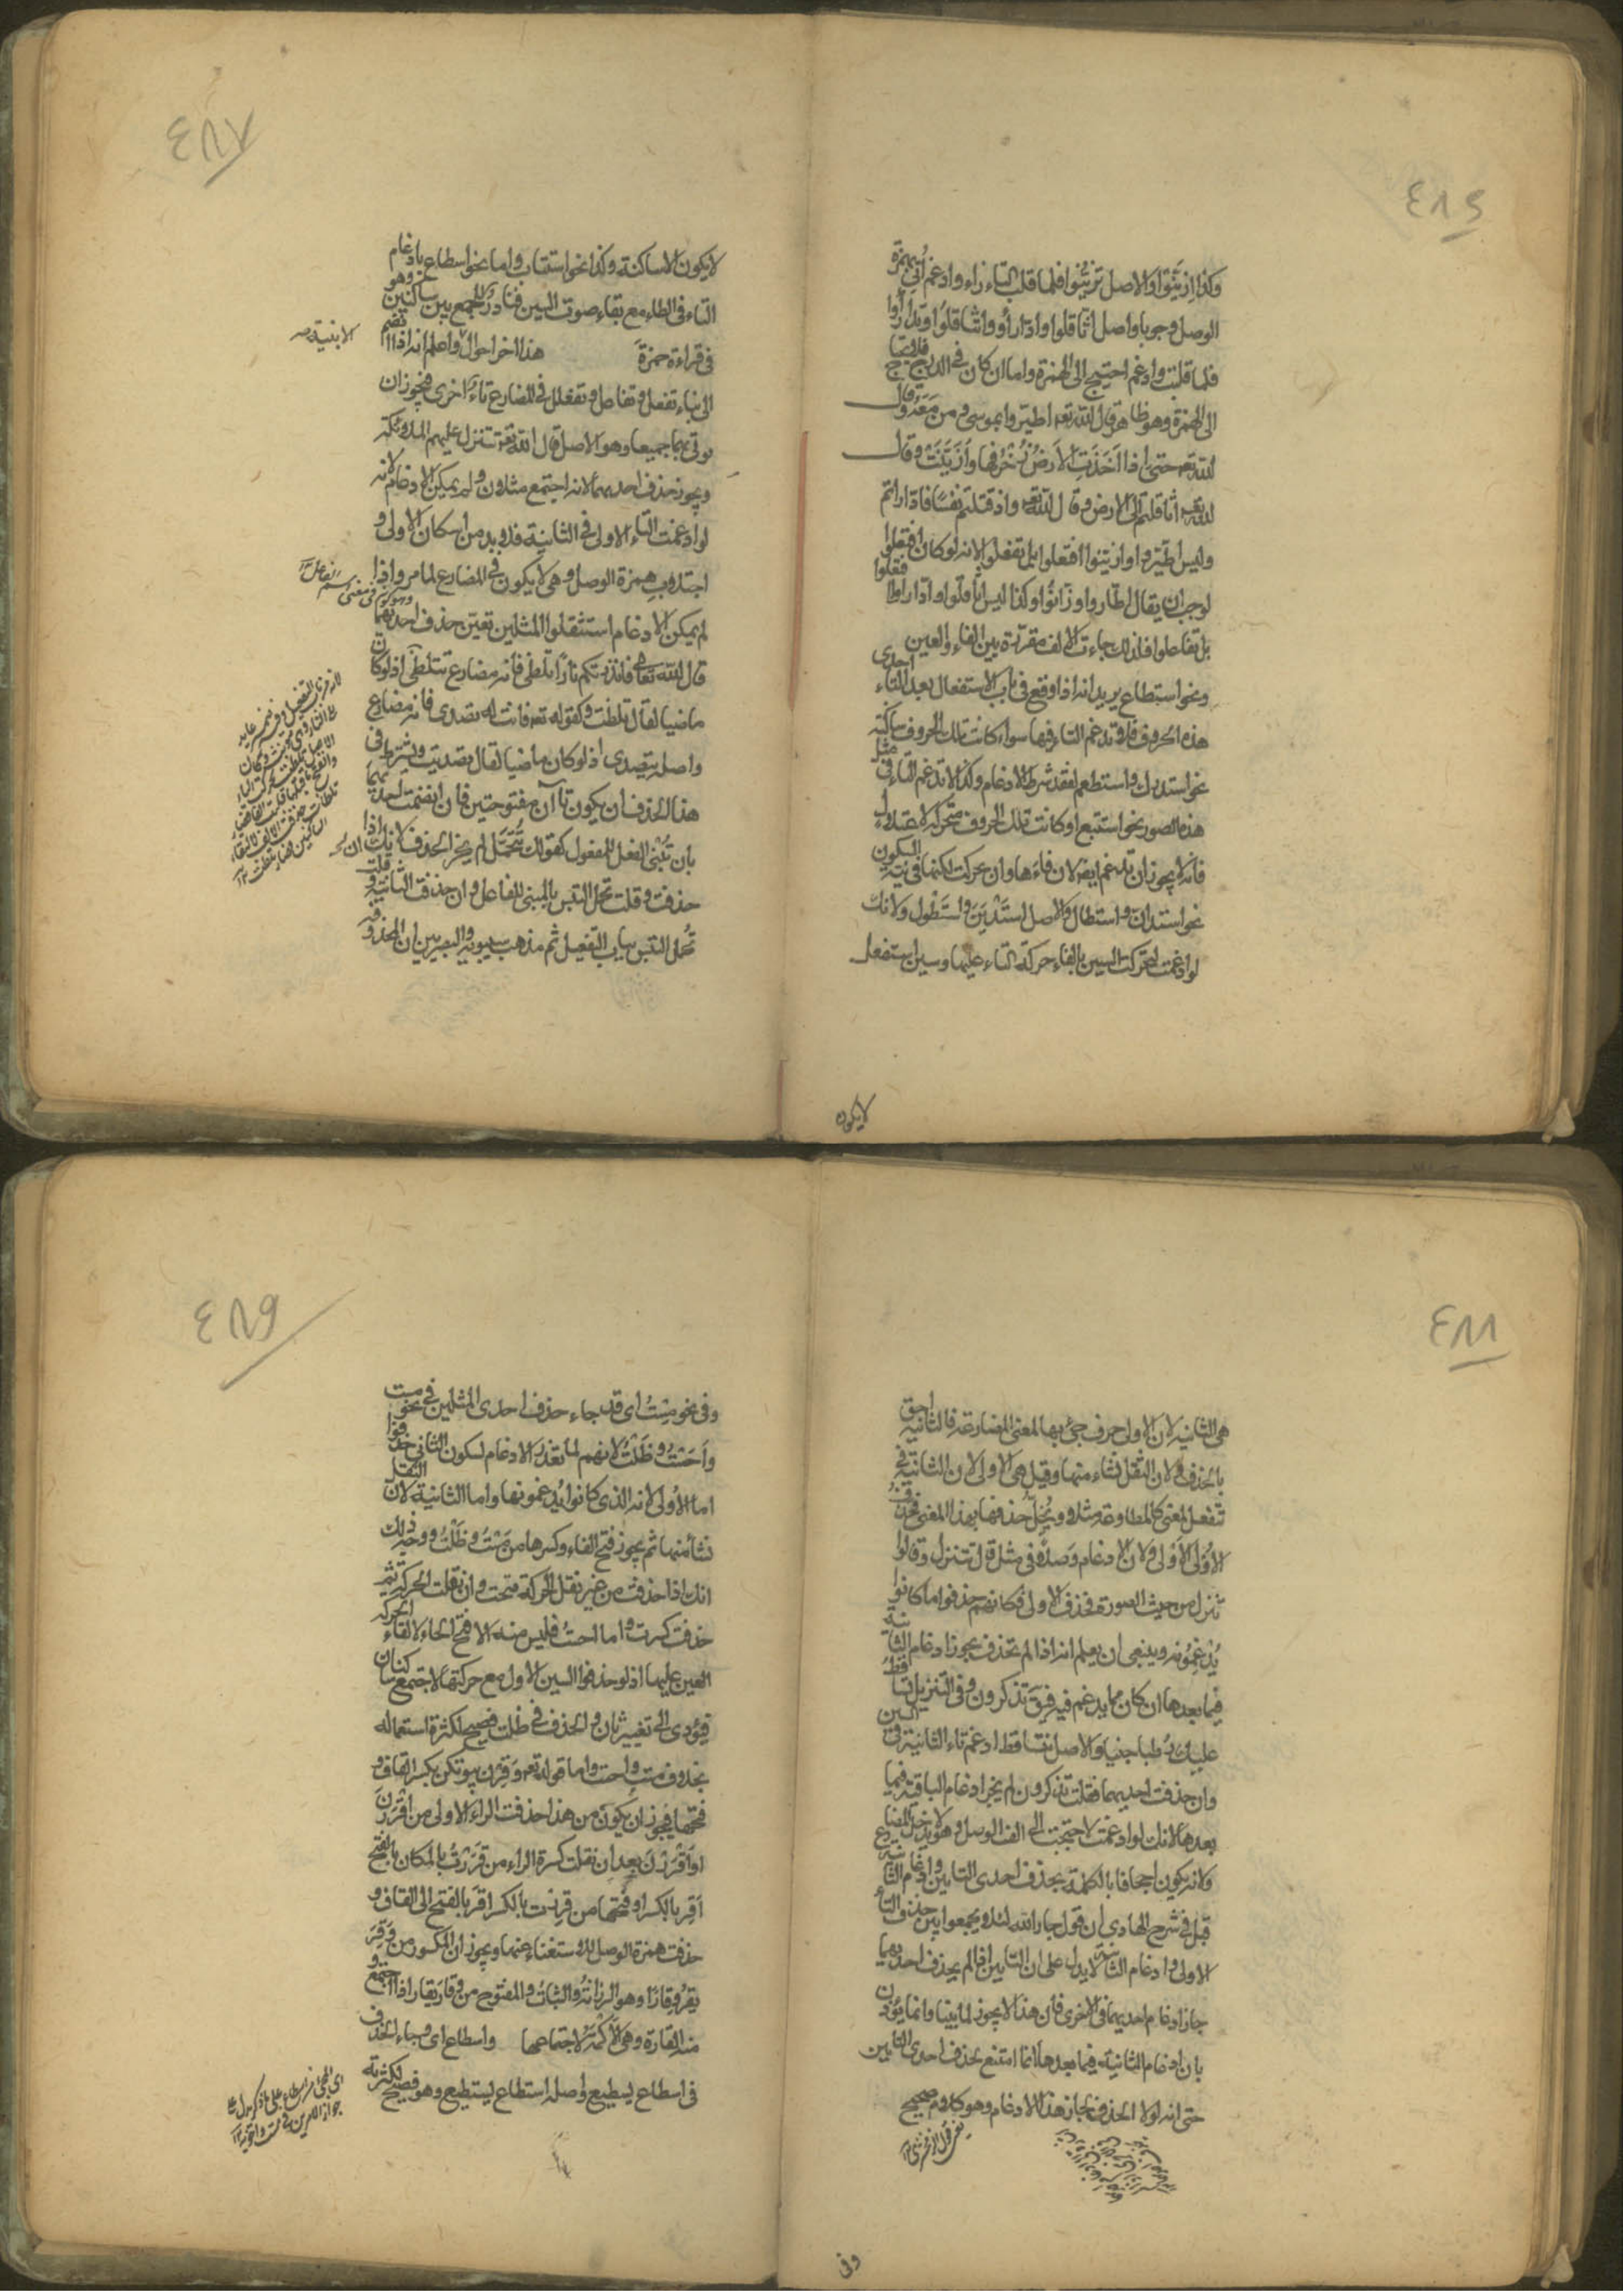 ٤٨٦
وكذا ازينوا والاصل تزينوا فلما قلب التاء زاء وادغم اتي بهمزة
الوصل وجوبا واصل اثاقلوا وادارأوا تثاقلوا وتدارأوا
فلما قلبت وادغم احتيج الى الهمزة واما ان كان في الدرج فلا يحتاج
الى الهمزة وهو ظاهر قال الله تعه اطيروا بموسى ومن معه وقال
الله تعه حتى اذا اخذت الارض زخرفها وازينت وقال
الله تعه اثاقلتم الى الارض وقال الله تعه واذ قتلتم نفسا فادارأتم
وليس اطيروا وازينوا افتعلوا بل تفعلوا لانه لو كان افتعلوا
لوجب ان يقال اطاروا وزانوا وكذا ليس اثاقلوا وادارأوا افعلوا
بل تفاعلوا فلذلك جاءت الالف مقررة بين الفاء والعين
ونحو استطاع يريد انه اذا وقع في باب الاستفعال بعد التاء احدى
هذه الحروف فلا تدغم التاء فيها سواء كانت تلك الحروف ساكنة
نحو استدرك واستطعم لفقد شرط الادغام وكذا لا تدغم التاء في مثل
هذه الصور نحو استتبع او كانت تلك الحروف متحركة لاعتلال
فانه لا يجوز ان تدغم ايضا لان فاءها وان تحركت لكنها في نية السكون
نحو استدان واستطال والاصل استدين واستطول ولانك
لو ادغمت لتحركت السين بالقاء حركة التاء عليها وسين استفعل
لا يكون
٤٨٧
لا يكون الا ساكنة وكذا نحو استتاب واما نحو اسطاع بادغام
التاء في الطاء مع بقاء صوت السين فنادر للجمع بين ساكنين وهو
في قراءة حمزة هذا اخر احوال الابنية واعلم انه اذا انضم
الى بناء تفعل وتفاعل وتفعلل في المضارع تاء اخرى فيجوز ان
يؤتى بهما جميعا وهو الاصل قال الله تعه تتنزل عليهم الملائكة
ويجوز حذف احديهما لانه اجتمع مثلان ولم يمكن الادغام لانه
لو ادغمت التاء الاولى في الثانية فلا بد من اسكان الاولى و
اجتلاب همزة الوصل وهي لا يكون في المضارع لما مر واذا
لم يمكن الادغام استثقلوا المثلين تعين حذف احديهما
قال الله تعالى فانذرتكم نارا تلظى فانه مضارع تتلظى اذ لو كان
ماضيا لقال تلظت وكقوله تعه فانت له تصدى فانه مضارع
واصله تتصدى اذ لو كان ماضيا لقال تصديت ويشترط في
هذا الحذف ان يكون تاآن مفتوحتين فان انضمت احديهما
بان تبني الفعل للمفعول كقولك تتحمل لم يجز الحذف لانك ان
حذفت وقلت تحمل التبس بالمبني للفاعل وان حذفت الثانية وقلت
تحمل التبس بباب التفعيل ثم مذهب سيبويه والبصريين ان المحذوفة
٤٨٨
هي الثانية لان الاولى حرف جئ بها لمعنى المضارعة فالثانية احق
بالحذف ولان الثقل نشاء منها وقيل هي الاولى لان الثانية في
تتفعل لمعنى كالمطاوعة مثلا ويخل حذفها بهذا المعنى فحذف
الاولى اولى ولان الادغام وصله في مثل قل تتنزل وقالوا
تنزل من حيث الصورة فحذف الاولى فكانهم حذفوا ما كانوا
يدغمونه وينبغي ان يعلم انه اذا لم تحذف يجوز ادغام الثانية
فيما بعدها ان كان مما يدغم فيه فرق تذكرون وفي التنزيل تساقط
عليك رطبا جنيا والاصل تتساقط ادغم تاء الثانية في السين
وان حذفت احديهما فقلت تذكرون لم يجز ادغام الباقية فيما
بعدها لانك لو ادغمت لاحتجت الى الف الوصل وهو لا يدخل المضارع
ولانه يكون اجحافا بالكلمة بحذف احدى التائين وادغام الثانية
قيل في شرح الهادي ان قول جار الله لئلا يجمعوا بين حذف التاء
الاولى وادغام الثانية لا يدل على ان التائين اذا لم يحذف احديهما
جاز ادغام احديهما في الاخرى فان هذا لا يجوز لما بينا وانما يؤذن
بان ادغام الثانية فيما بعدها انما امتنع بحذف احدى التائين
حتى انه لولا الحذف لجاز هذا الادغام وهو كلام صحيح
وفي
٤٨٩
وفي نحو مست اي قد جاء حذف احدى المثلين في نحو مست
واحست وظلت لانهم لما تعذر الادغام لسكون الثاني حذفوا
اما الاولى لانه الذي كانوا يدغمونها واما الثانية لان الثقل
نشأ منها ثم يجوز فتح الفاء وكسرها من مست وظلت ووجه ذلك
انك اذا حذفت من غير نقل الحركة فتحت وان نقلت الحركة ثم
حذفت كسرت واما احست فليس منه الا فتح الحاء لالقاء حركة
العين عليها اذ لو حذفوا السين الاولى مع حركتها لاجتمع ساكنان
فيؤدي الى تغيير ثان والحذف في ظلت فصيح لكثرة استعماله
بخلاف مست واحست واما قوله تعه وقرن في بيوتكن بكسر القاف و
فتحها فيجوز ان يكون من هذا حذفت الراء الاولى من اقررن
او اقررن بعد ان نقلت كسرة الراء من قررت بالمكان بالفتح
اقر بالكسر او فتحها من قررت بالكسر اقر بالفتح الى القاف و
حذفت همزة الوصل للاستغناء عنها ويجوز ان المكسور من وقر
يقر وقارا وهو الرزانة والثبات والمفتوح من قار يقار اذا اجتمع و
منه القارة وهي الاكمة لاجتماعها واسطاع اي وجاء الحذف
في اسطاع يسطيع واصله استطاع يستطيع وهو فصيح لكثرته